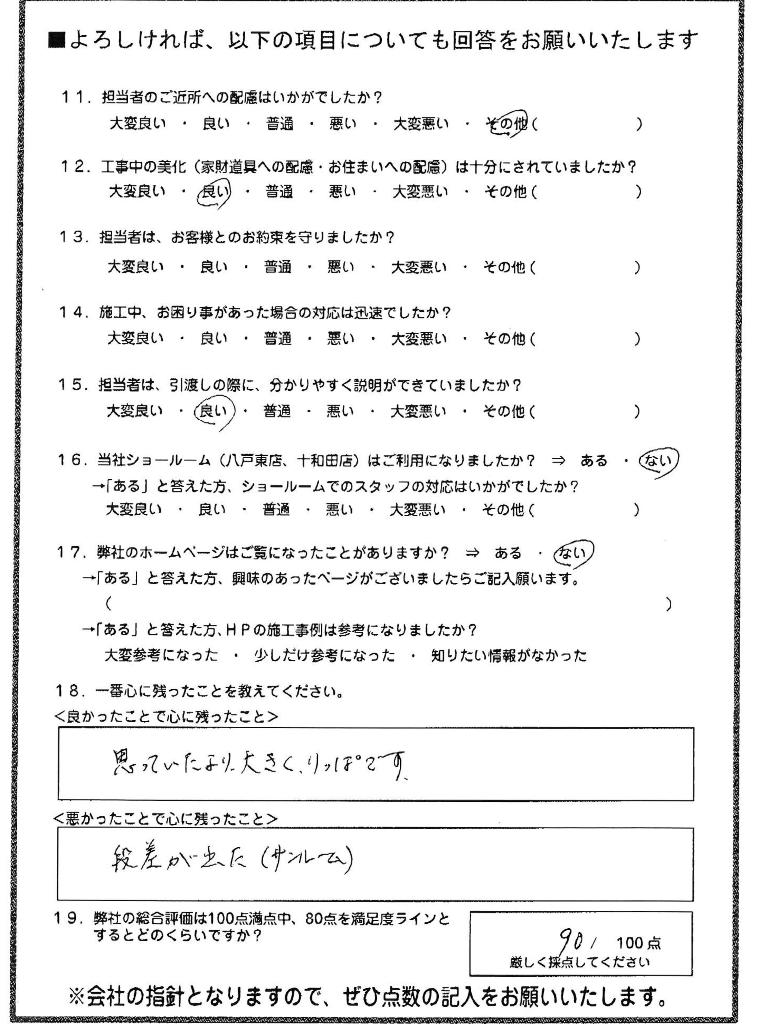 ■よろしければ、以下の項目についても回答をお願いいたします
11．担当者のご近所への配慮はいかがでしたか？
大変良い ・ 良い ・ 普通 ・ 悪い ・ 大変悪い ・ その他（　　　　　　）
12．工事中の美化（家財道具への配慮・お住まいへの配慮）は十分にされていましたか？
大変良い ・ 良い ・ 普通 ・ 悪い ・ 大変悪い ・ その他（　　　　　　）
13．担当者は、お客様とのお約束を守りましたか？
大変良い ・ 良い ・ 普通 ・ 悪い ・ 大変悪い ・ その他（　　　　　　）
14．施工中、お困り事があった場合の対応は迅速でしたか？
大変良い ・ 良い ・ 普通 ・ 悪い ・ 大変悪い ・ その他（　　　　　　）
15．担当者は、引渡しの際に、分かりやすく説明ができていましたか？
大変良い ・ 良い ・ 普通 ・ 悪い ・ 大変悪い ・ その他（　　　　　　）
16．当社ショールーム（八戸東店、十和田店）はご利用になりましたか？ ⇒ ある ・ ない
→「ある」と答えた方、ショールームでのスタッフの対応はいかがでしたか？
大変良い ・ 良い ・ 普通 ・ 悪い ・ 大変悪い ・ その他（　　　　　　）
17．弊社のホームページはご覧になったことがありますか？ ⇒ ある ・ ない
→「ある」と答えた方、興味のあったページがございましたらご記入願います。
（　　　　　　　　　　　　　　　　　　　　）
→「ある」と答えた方、ＨＰの施工事例は参考になりましたか？
大変参考になった ・ 少しだけ参考になった ・ 知りたい情報がなかった
18．一番心に残ったことを教えてください。
＜良かったことで心に残ったこと＞
思っていたより、大きく、りっぱです。
＜悪かったことで心に残ったこと＞
段差が出た（サンルーム）
19．弊社の総合評価は100点満点中、80点を満足度ラインと
するとどのくらいですか？
90/ 100点
厳しく採点してください
※会社の指針となりますので、ぜひ点数の記入をお願いいたします。